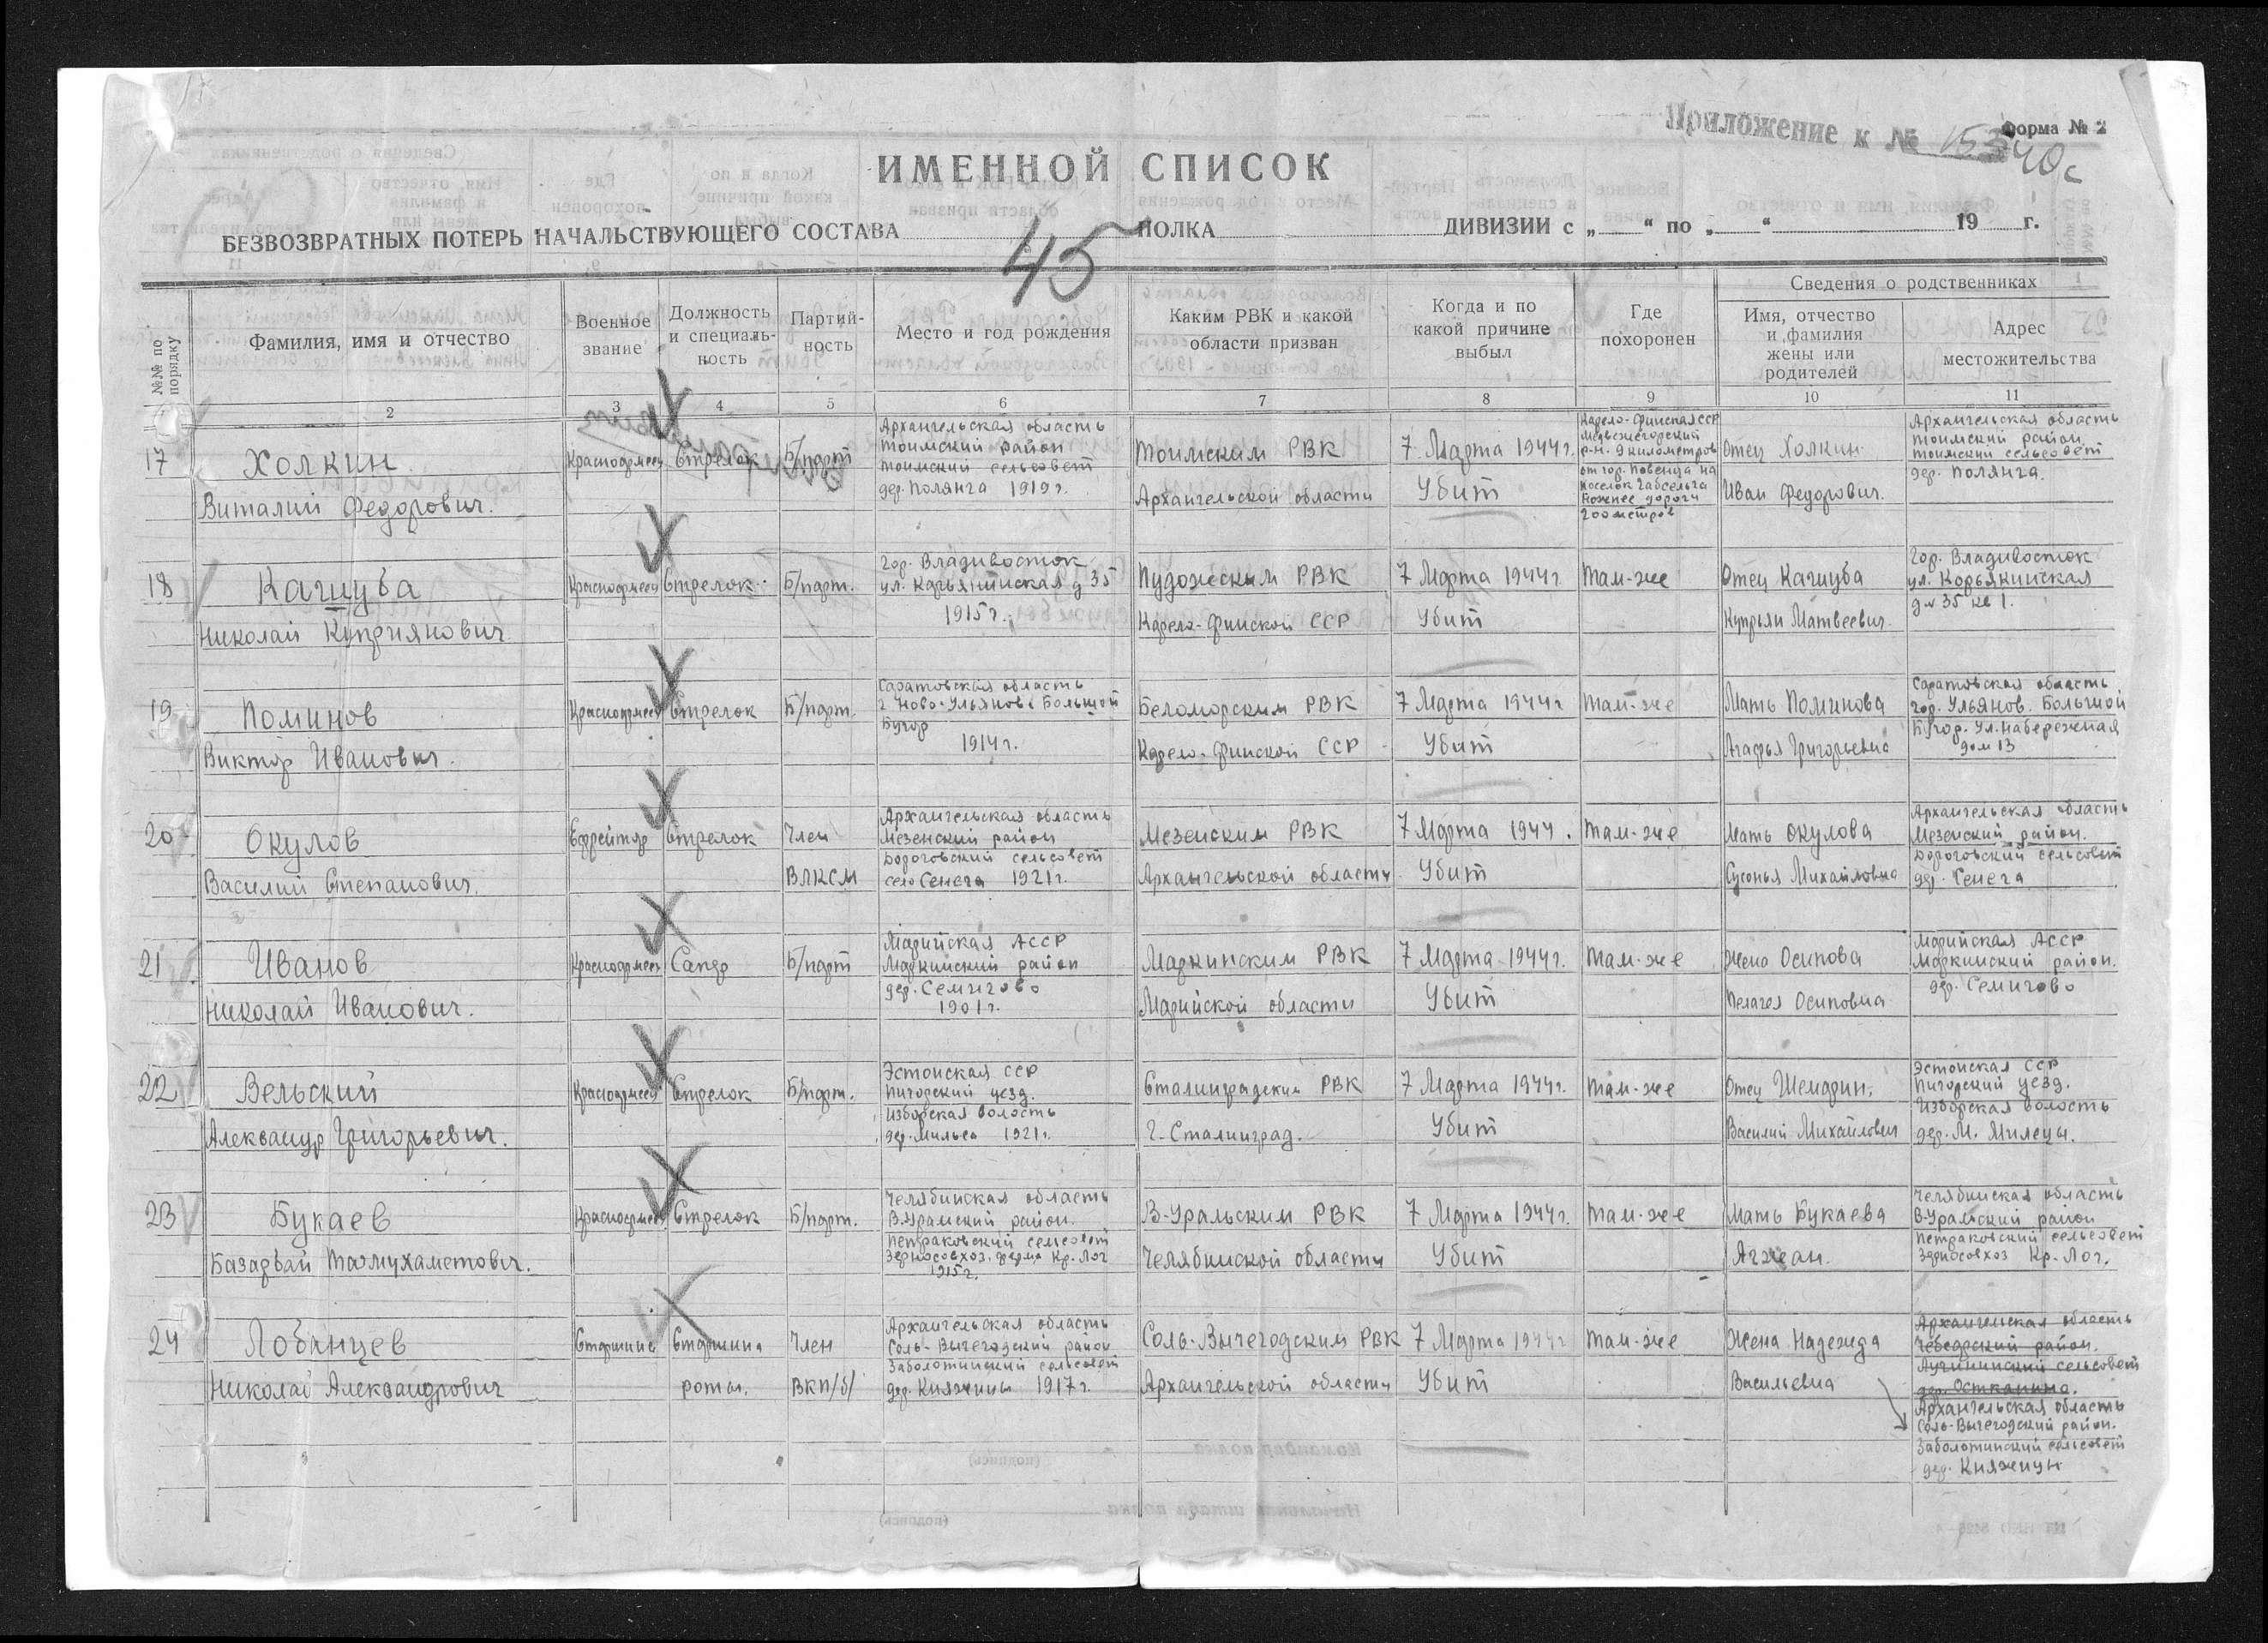 Приложение к № 15340с
Форма № 2
ИМЕННОЙ СПИСОК
БЕЗВОЗВРАТНЫХ ПОТЕРЬ НАЧАЛЬСТВУЮЩЕГО СОСТАВА ПОЛКА ДИВИЗИИ с „ “ по „ “ 19 г.
45
№№ по порядку
Фамилия, имя и отчество
Военное
звание
Должность
и специаль-
ность
Партий-
ность
Место и год рождения
Каким РВК и какой
области призван
Когда и по
какой причине
выбыл
Где
похоронен
Сведения о родственниках
Имя, отчество
и фамилия
жены или
родителей
Адрес
местожительства
2 3 4 5 6 7 8 9 10 11
17
Холкин
Виталий Федорович.
Красноармеец
Стрелок
Б/парт
Архангельская область
Тоимский район
Тоимский сельсовет
дер. Полянга 1919г.
Тоимским РВК
Архангельской области
7 Марта 1944г.
Убит
Карело-Финская ССР
Медвежегорский
р-н. 9 километров
от гор. Повенца на
поселок Габсельга
Южнее дороги
200 метров
Отец Холкин
Иван Федорович.
Архангельская область
Тоимский район
Тоимский сельсовет
дер. Полянга.
18
Кашуба
Николай Куприянович
Красноармеец
Стрелок
Б/парт.
гор. Владивосток
ул. д 35
1915г.
Пудожским РВК
Карело-Финской ССР
7 Марта 1944г
Убит
Там-же
Отец Кашуба
Куприян Матвеевич.
Гор. Владивосток
ул.
д. 35 кв 1.
19
Поминов
Виктор Иванович.
Красноармеец
Стрелок
Б/парт.
Саратовская область
г Ново-Ульянов. Большой
Бугор
1914г.
Беломорским РВК
Карело-Финской ССР
7 Марта 1944г
Убит
Там-же
Мать Поминова
Агафья Григорьевна
Саратовская область
гор. Ульянов. Большой
Бугор. Ул. Набережная
дом 13
20
Окулов
Василий Степанович.
Ефрейтор
Стрелок
Член
ВЛКСМ
Архангельская область
Мезенский район
Дороговский сельсовет
село Сенега 1921г.
Мезенским РВК
Архангельской области
7 Марта 1944.
Убит
Там-же
Мать Окулова
Михайловна
Архангельская область
Мезенский район.
Дороговский сельсовет
дер. Сенега
21
Иванов
Николай Иванович.
Красноармеец
Сапер
Б/парт
Марийская АССР
Маркинский район
дер. Семигово
1901г.
Маркинским РВК
Марийской области
7 Марта 1944г.
Убит
Там-же
Жена Осипова
Пелагея Осиповна
Марийская АССР
Маркинский район.
дер. Семигово
22
Вельский
Александр Григорьевич.
Красноармеец
Стрелок
Б/парт.
Эстонская ССР
Пичорский уезд.
Изборская волость
1921г.
Сталинградским РВК
г-Сталинград.
7 Марта 1944г.
Убит
Там-же
Отец
Василий Михайлович
Эстонская ССР
Пичорский уезд.
Изборская волость
дер. М. Милецы.
23
Букаев
Красноармеец
Стрелок
Б/парт.
Челябинская область
В.Уральский район.
Петраковский сельсовет
Зерносовхоз. ферма Кр. Лог
1915г.
В-Уральским РВК
Челябинской области
7 Марта 1944г.
Убит
Там-же
Мать Букаева
Челябинская область
В-Уральский район
Петраковский сельсовет
Зерносовхоз Кр. Лог.
24
Лобанцев
Николай Александрович
Старшина
Старшина
роты.
Член
ВКП/б/
Архангельская область
Соль-Вычегодский район
Заболотинский сельсовет
дер. Княжицы 1917г.
Соль-Вычегодским РВК
Архангельской области
7 Марта 1944г
Убит
Там-же
Жена Надежда
Васильевна
Архангельская область
район.
сельсовет
дер.
Архангельская область
Соль-Вычегодский район.
Заболотинский сельсовет
дер. Княжицы